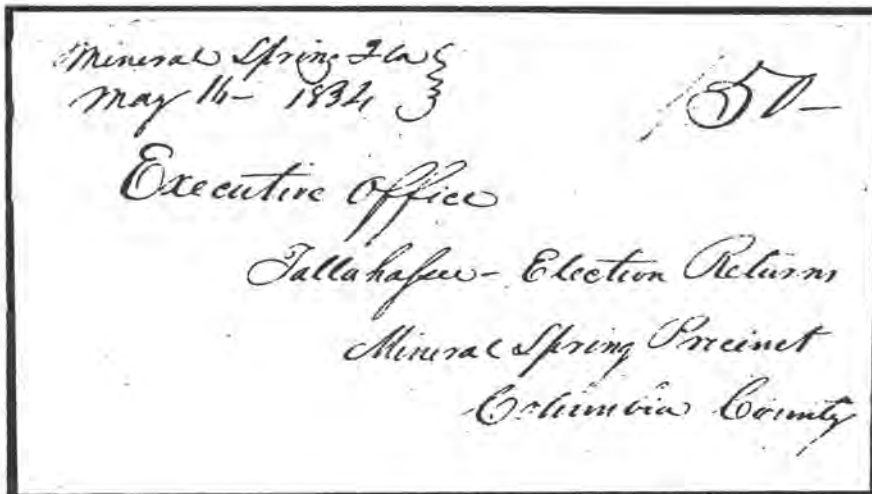 Mineral Spring Fla
May 14- 1834
50-
Executive Office
Tallahassee - Election Returns
Mineral Spring Precinct
Columbia County